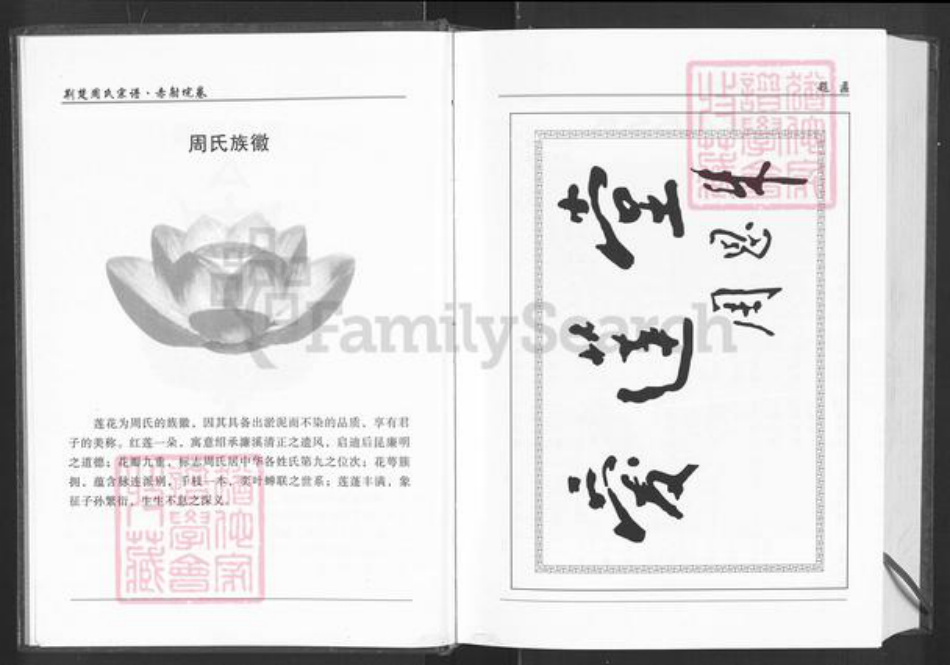 荆楚周氏宗谱·赤射垸卷
周氏族徽
莲花为周氏的族徽，因其具备出淤泥而不染的品质，享有君
子的美称。红莲一朵，寓意绍承濂溪清正之遗风，启迪后昆廉明
之道德；花瓣九重，标志周氏居中华各姓氏第九之位次；花萼簇
拥，蕴含脉连派别，千枝一本，奕叶蝉联之世系；莲蓬丰满，象
征子孙繁衍，生生不息之深义。
猶他家
譜學會
题 匾
爱莲堂
周恩来
猶他家
譜學會
FamilySearch